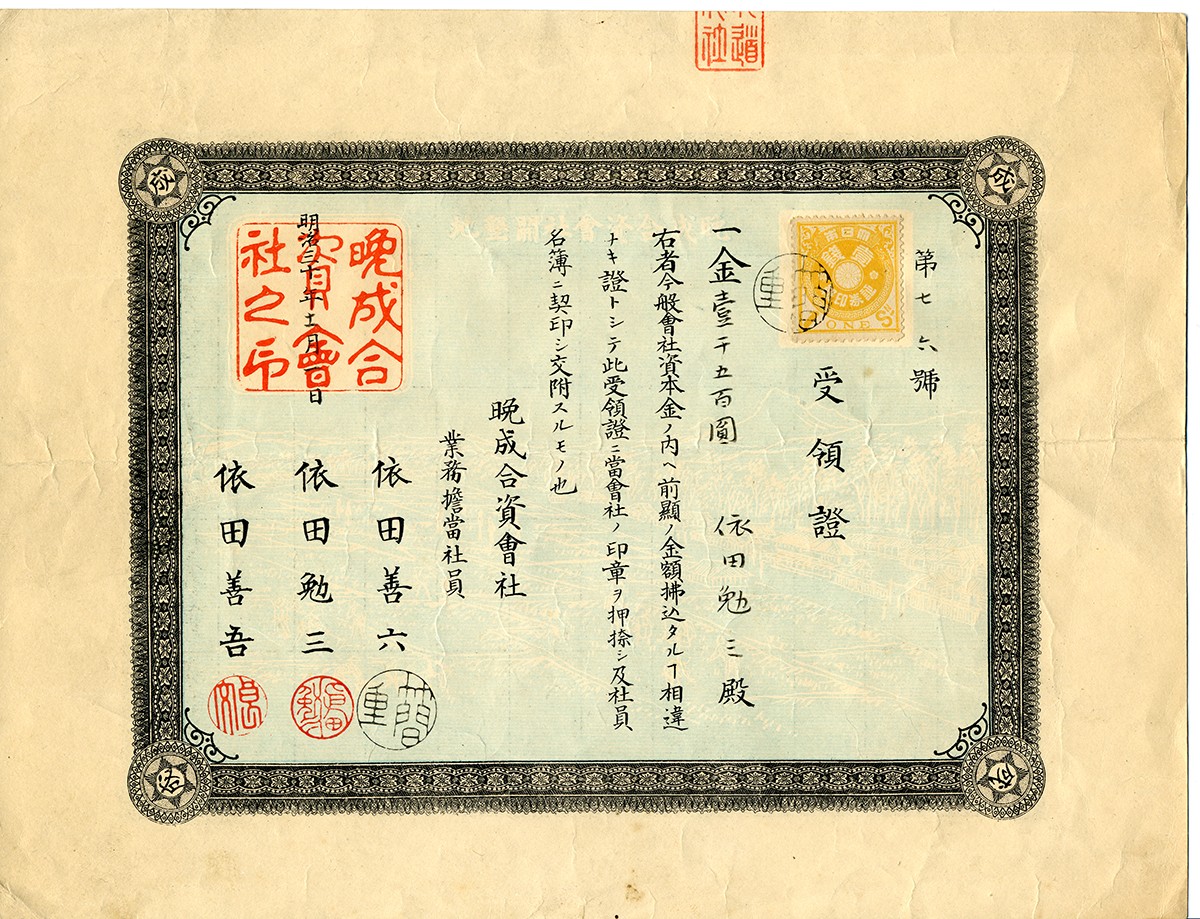 第七六號
受領證
一金壹千五百圓 依田勉三殿
右者今般會社資本金ノ内ヘ前顯ノ金額拂込タルヿ相違
ナキ證トシテ此受領證ニ當會社ノ印章ヲ押捺シ及社員
名簿ニ契印シ交附スルモノ也
晩成合資會社
業務擔當社員
依田善六
依田勉三
依田善吾
明治三十年十一月一日
晩成合
資會
社之印
ONE
成
成
成
成